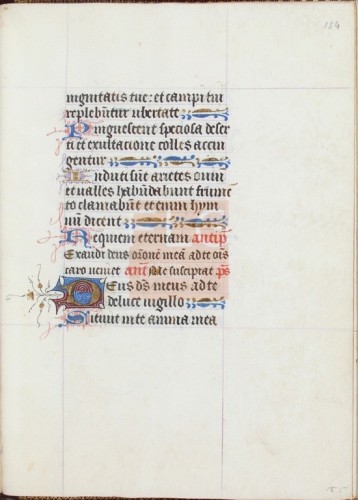 184
nignitatis tue: et campi tui
replebūtur ubertate
Pinguescent speciosa deser
ti et exultacione colles accin
gentur
Induti sūt arietes ouiū
et ualles habūdabunt frumē
to clamabūt et enim hym
nū dicent
Requiem eternam antip
Exaudi deus oronē meā ad te ois
caro veniet añ Me suscepit ps
Deus ds meus ad te
de luce uigillo
Sitiuit in te anima mea